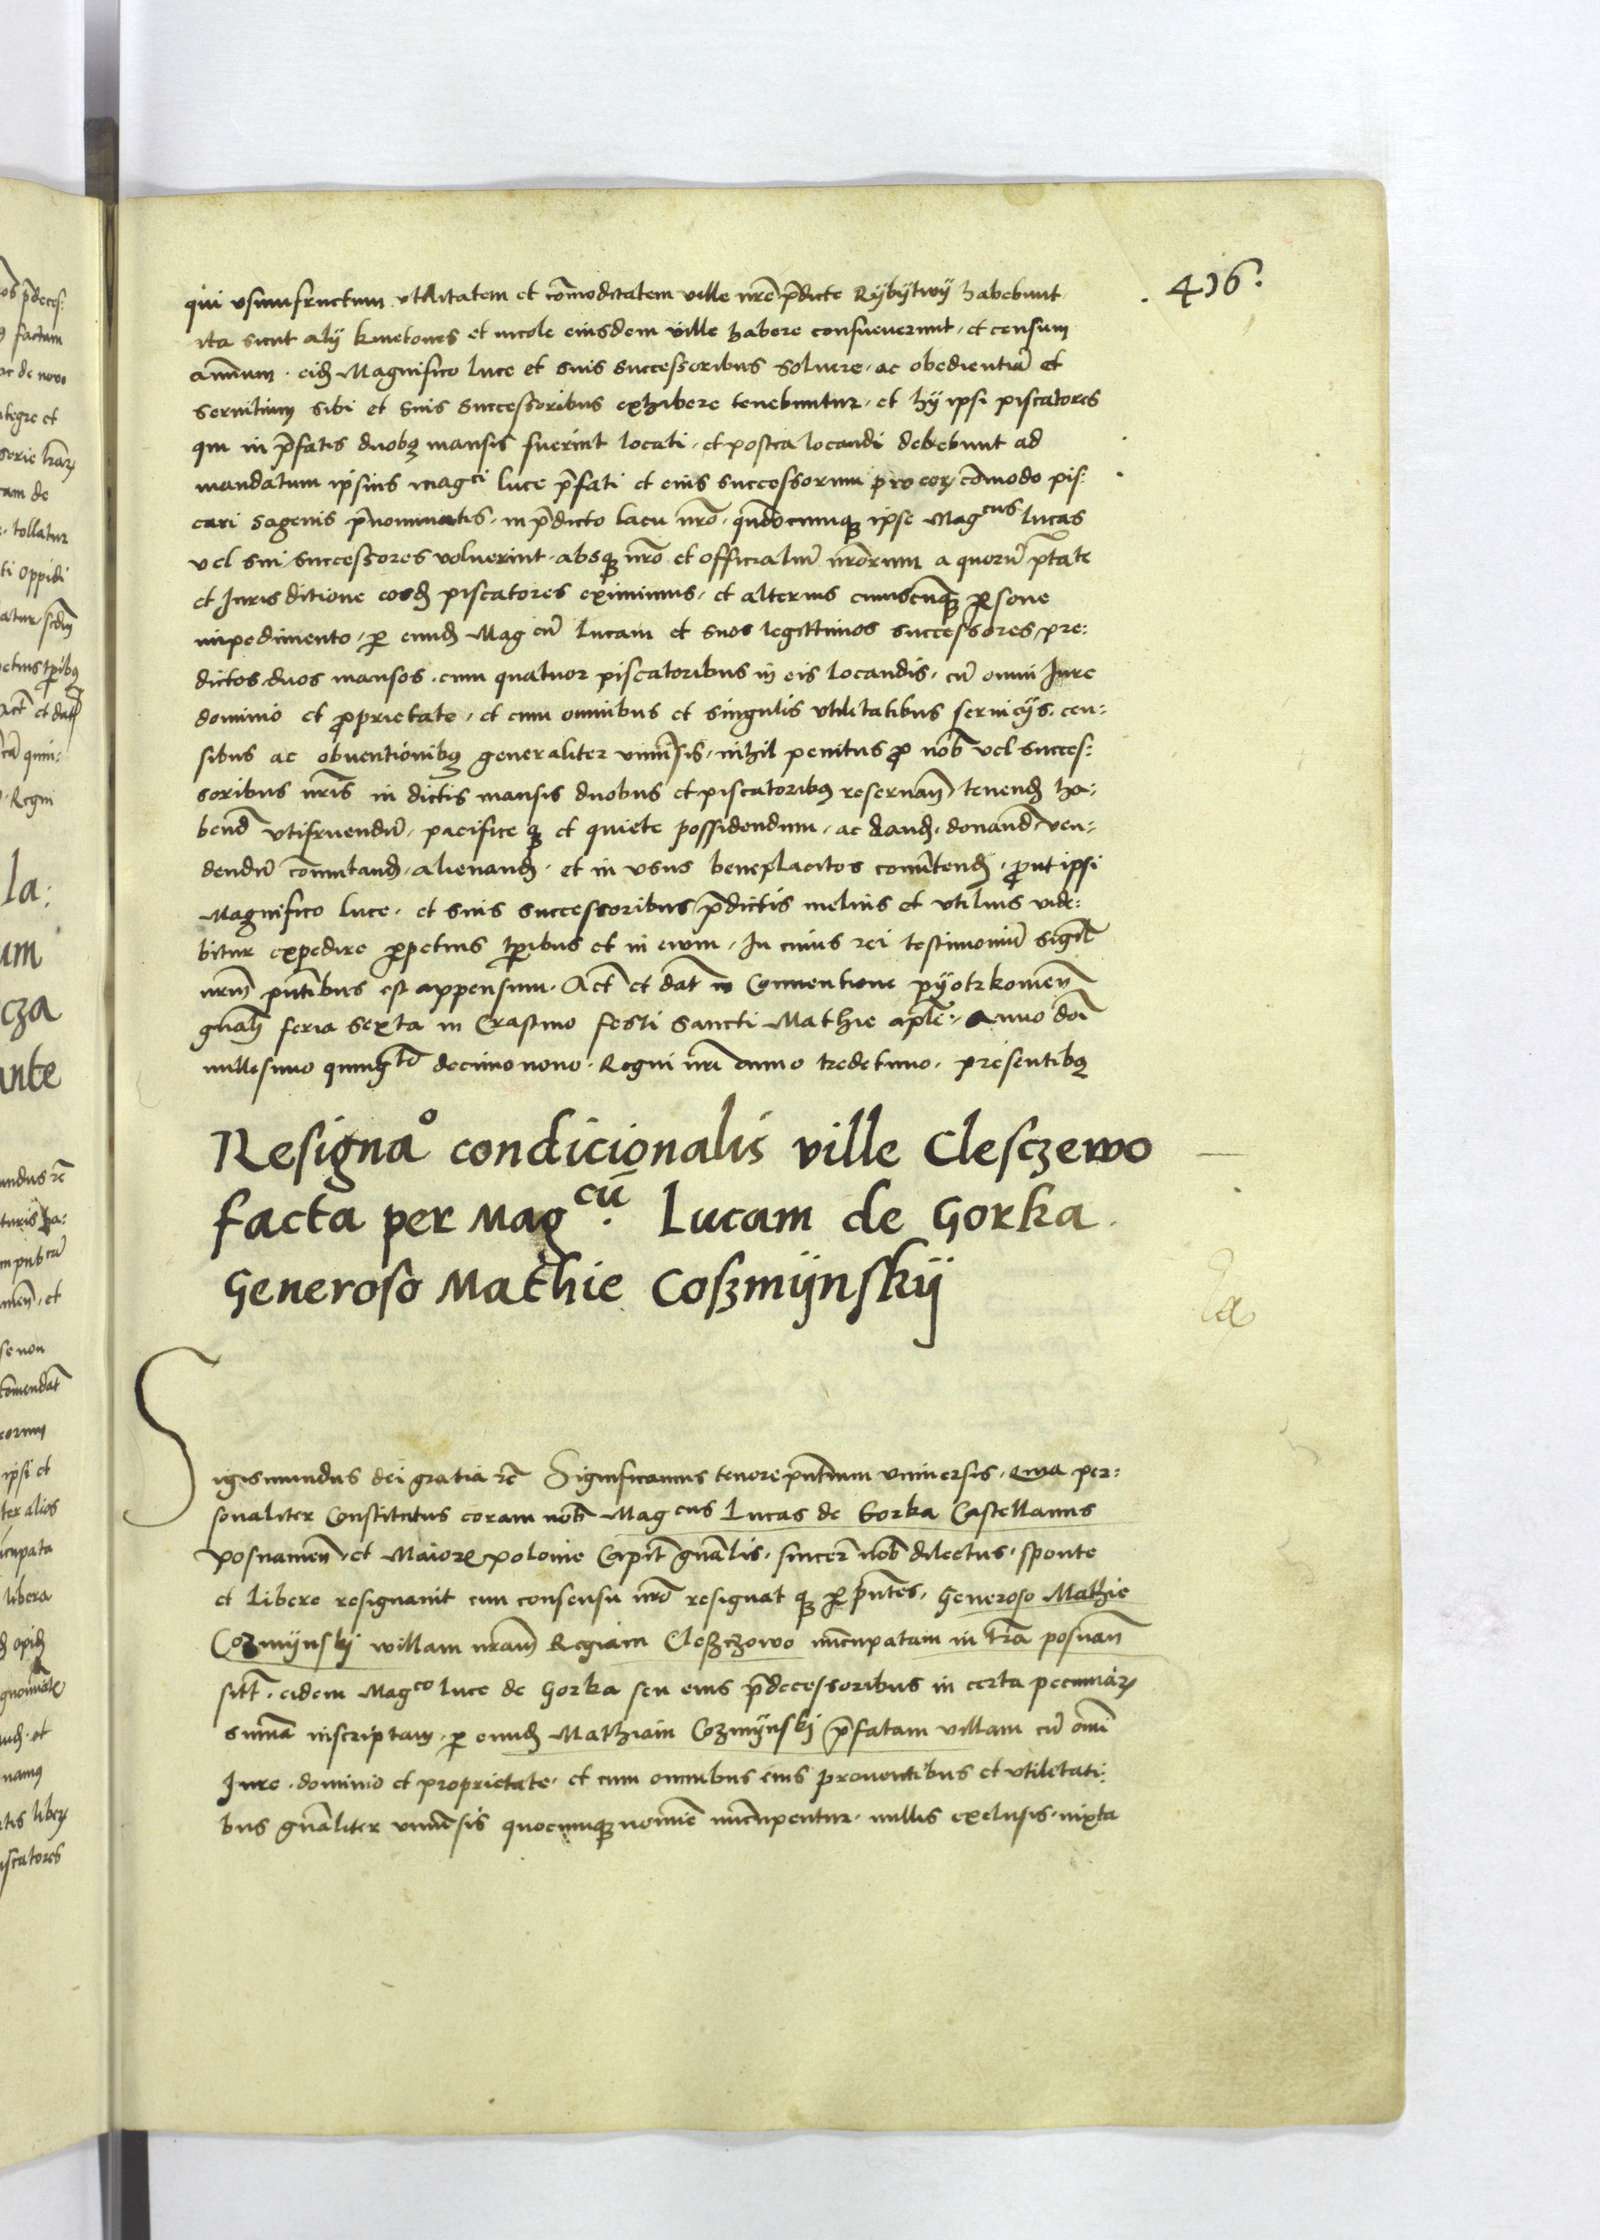 . 416 .
qui vsumfructum vtilitatem et com̄oditatem ville nrē p̄dicte Rybÿtwÿ habebunt
ita sicut alÿ kmetones et incole eiusdem ville habere consueuerunt, et censum
annuum . eidꝫ Magnifico luce et suis successoribus soluere, ac obedientiā et
seruitium sibi et suis successoribus exhibere tenebuntur, et hÿ ipsi piscatores
qui in p̄fatis duobꝫ mansis fuerint locati, et postea locandi debebunt ad
mandatum ipsius magci luce p̄fati et eius successorum pro eorꝫ com̄odo pis:
cari sagenis p̄nominatis, in p̄dicto lacu nrō, qn̄documqꝫ ipse Magcus lucas
vel sui successores voluerint, absqꝫ nrō et officialiū nrōrum a quorū ptāte
et Jurisditione eosdꝫ piscatores eximimus, et alterius cuiuscunqꝫ ꝑsone
impedimento, ꝑ eundꝫ Magcū lucam et suos legittimos successores, pre:
dictos duos mansos, cum quatuor piscatoribus in eis locandis, cū omni Jure
dominio et ꝓprietate, et cum omnibus et singulis vtilitatibus seruicÿs, cen:
sibus ac obuentionibꝫ generaliter vniūsis, nihil penitus ꝓ nob̄ vel succes:
soribus nrīs in dictis mansis duobus et piscatoribꝫ reseruan̄ tenendꝫ ha:
bend̄ vtifruendū, pacificeqꝫ et quiete possidendum, ac dandꝫ, donand̄ ven:
dendū com̄utandꝫ, alienandꝫ, et in vsus beneplacitos conūtendꝫ, ꝓut ipsi
Magnifico luce, et suis successoribus p̄dictis melius et vtilius vide:
bitur expedire ꝑpetuis tꝑibus et in euum, In cuius rei testimoniū sigill̄
nrūm pn̄tibus est appensum. Act̄ et dat̄ in Conuentione pÿotrkomen̄
gn̄ali feria sexta in Crastino festi sancti Mathie aplī, Anno dn̄i
millesimo quingto decimonono, Regni nrī anno tredecimo, presentibꝫ
Resignao condicionalis ville Clesczewo
facta per Magcū. Lucam de Gorka.
Generoso Mathie Coszmÿnskÿ
Sigismundus dei gratia rc̄ Significamus tenore pn̄tium vniuersis, quia per:
sonaliter Constitutus coram nob̄ Magcus Lucas de Gorka Castellanus
posnamen̄, et Maioris polonie Capit̄ gn̄alis, sincer̄ nob̄ dilectus, sponte
et libere resignauit cum consensu nrō resignatqꝫ ꝑ pn̄tes, Generoso Mathie
Cozmÿnskÿ willam nrām Regiam Cleszczowo nuncupatam in trā posnan̄
sitt̄, eidem Magco luce de Gorka seu eius p̄decessoribus in certa pecuniarꝫ
sum̄a inscriptam, ꝑ eundꝫ Mathiam Cozmÿnskÿ p̄fatam villam cū om̄i
Jure, dominio et proprietate, et cum omnibus eius prouentibus et vtilitati:
bus gn̄aliter vniūsis quocumqꝫ nomīe nuncupentur, nullis exclusis, iuxta